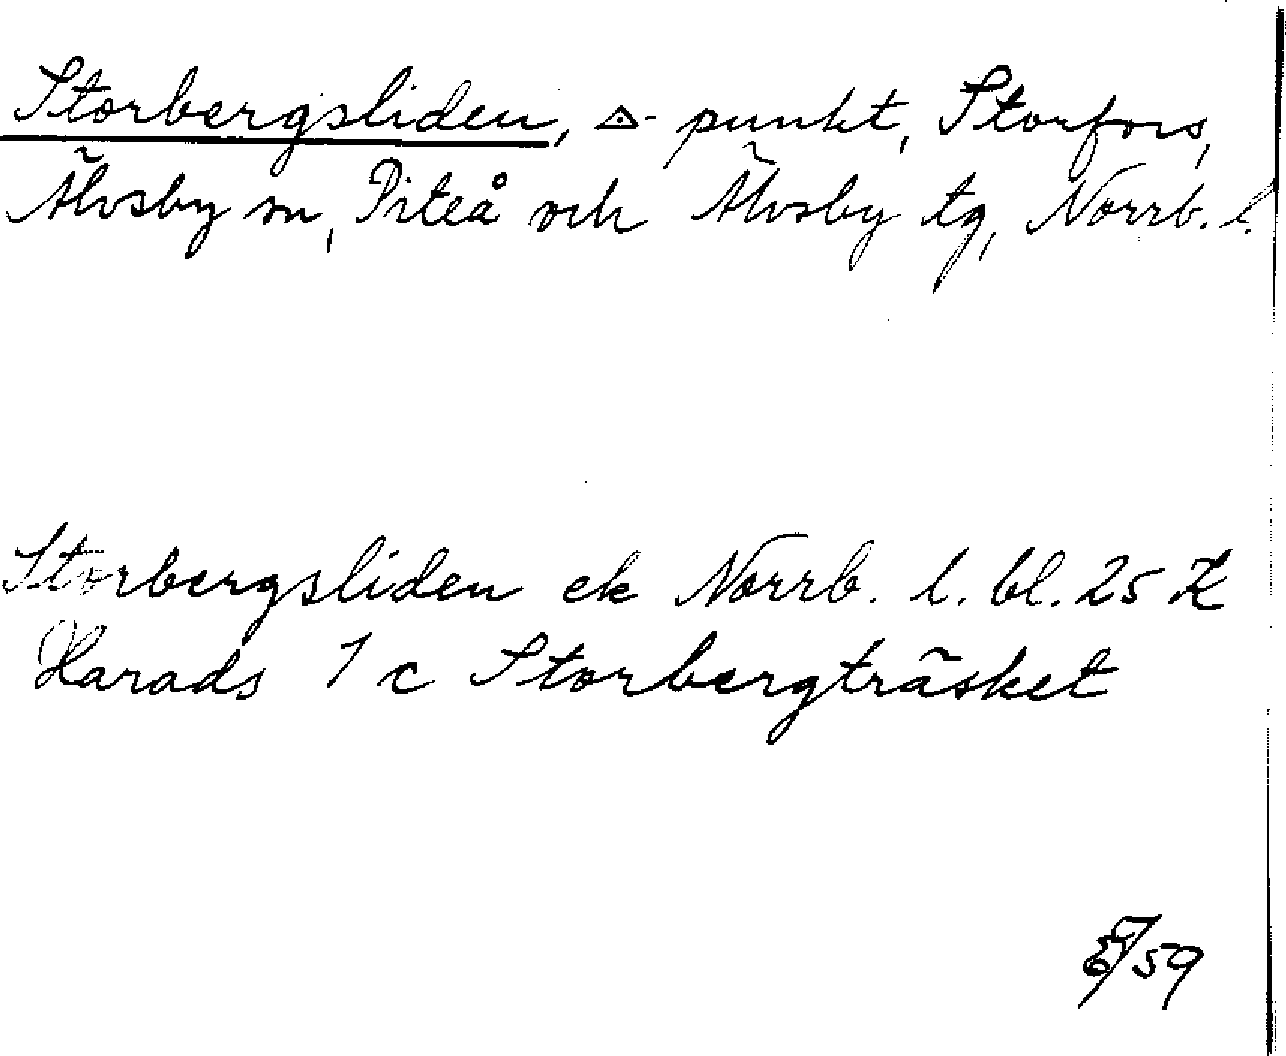 Storbergsliden, △-punkt, Storfors,
Älvsby sn, Piteå och Älvsby tg, Norrb. l.
Storbergsliden ek Norrb. l. bl. 25 K
Harads 1 c Storbergträsket
/59